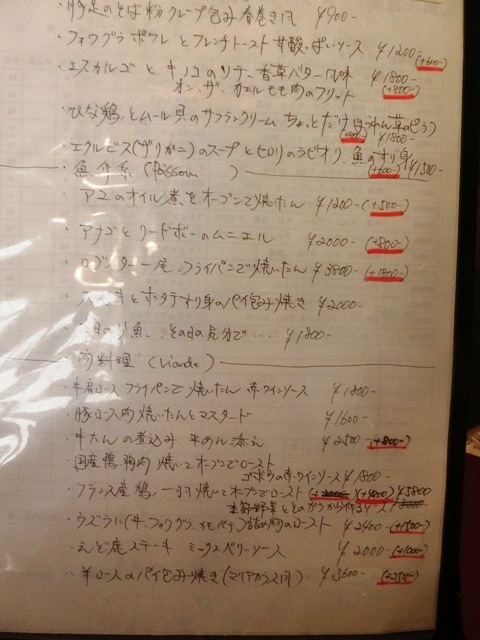 ・豚足のそば粉クレープ包み 春巻き風 ¥900-
・フォワグラ ポワレとフレンチトースト 甘酸っぱいソース ¥1200 (+600-)
・エスカルゴとキノコのソテー 香草バター風味 ¥1800-
オン・ザ・カエルもも肉のフリット (+800-)
・ひな鶏とムール貝のサフランクリーム ちょっとだけ ほうれん草のピラフ
¥1800-
・エクルビス(ザリガニ)のスープとセロリのラビオリ、魚のすり身 ¥1500
・魚介系 (Poisson) (+600-)
・アユのオイル煮をオーブンで焼いたん ¥1200- (+500-)
・アナゴとリードボーのムニエル ¥2000- (+800-)
・ロブスター一尾、フライパンで焼いたん ¥3800- (+1800-)
とホタテすり身のパイ包み焼き ¥2000-
魚、、その日の気分で・・・ ¥1800-
・肉料理 (Viande)
・牛肩ロース フライパンで焼いたん 赤ワインソース ¥1800-
・豚ロース肉 焼いたんとマスタード ¥1600-
・牛たんの煮込み 平めん添え ¥2500- (+800-)
・国産鴨胸肉 焼いてオーブンでロースト
ゴボウの赤ワインソース ¥1800-
・フランス産鳩、一羽焼いてオーブンでロースト (+4800) ¥5800
・ウズラに(牛、フォワグラ、 詰め胸のロースト ¥2400- (+1500-)
・えぞ鹿ステーキ ミックスベリーソース ¥2000- (+1000-)
・羊ロースのパイ包み焼き(マリアカラス風) ¥3600-